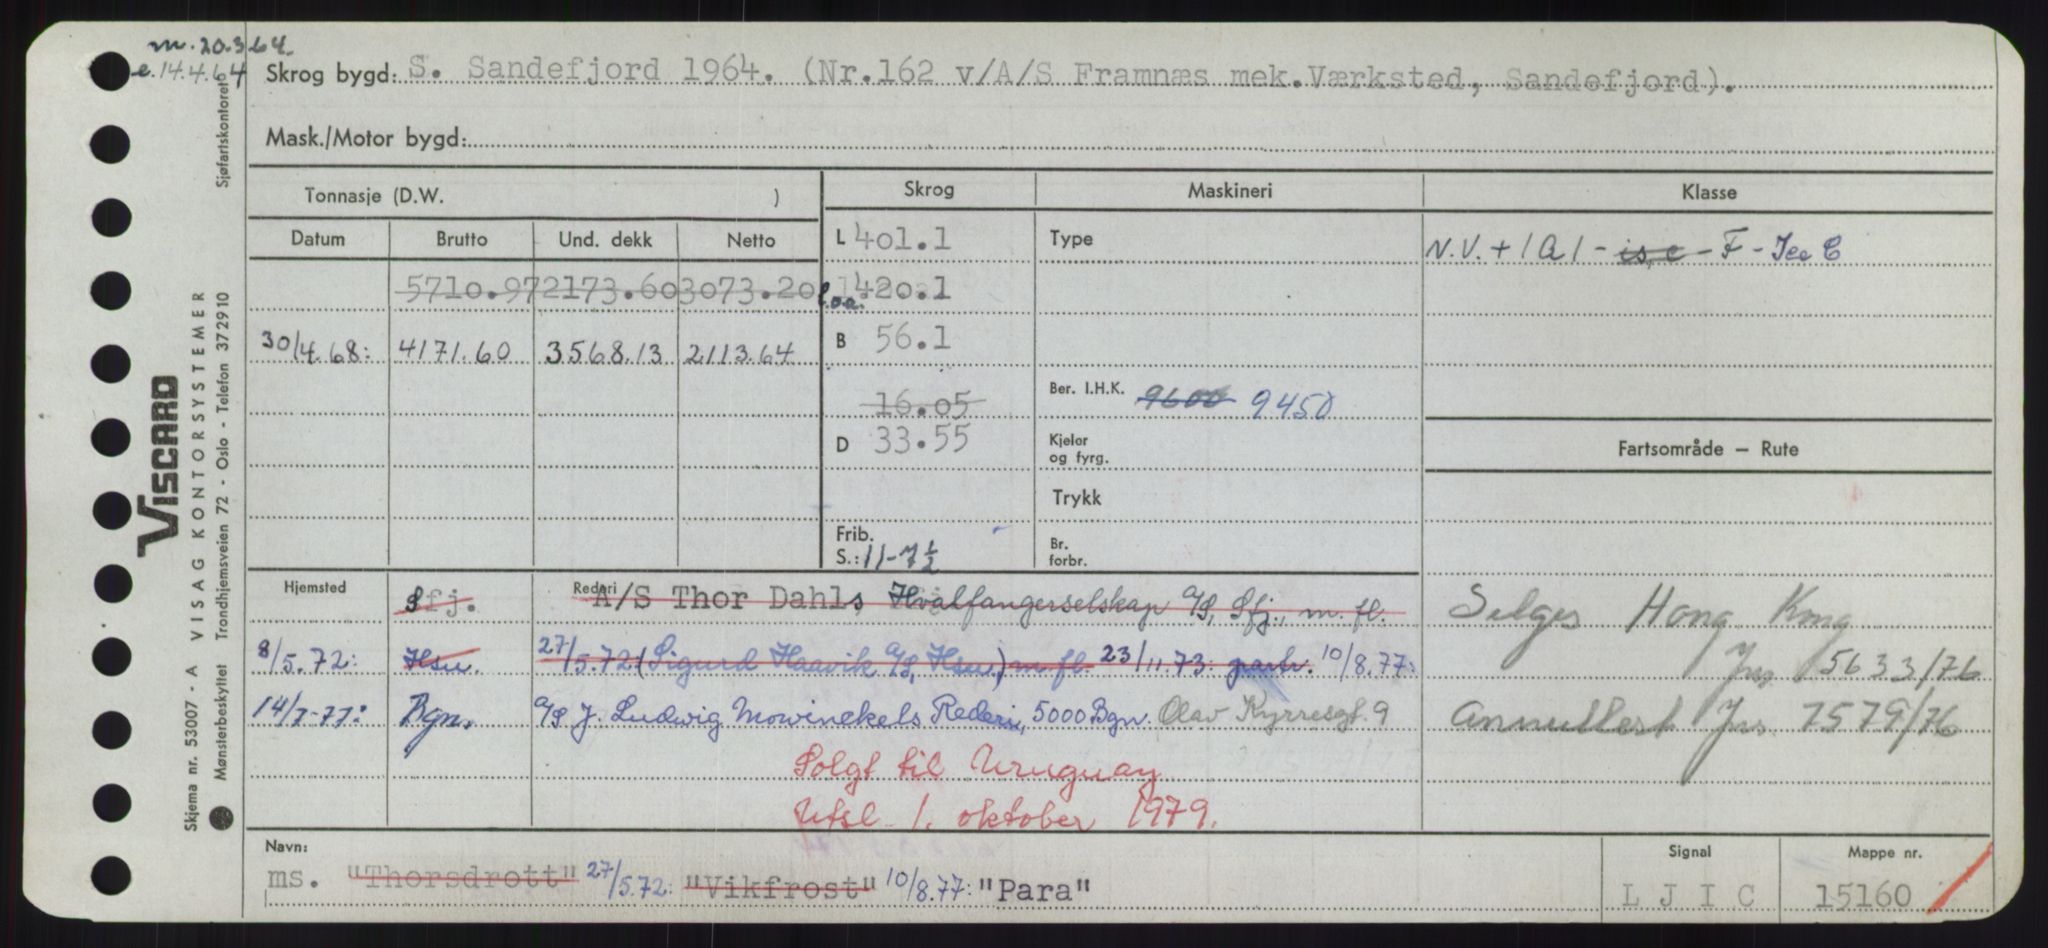 m. 20.3.64.
e. 14.4.64
Skrog bygd: S. Sandefjord 1964. (Nr.162 v/A/S Framnæs mek.Værksted, Sandefjord).
Mask./Motor bygd:
Tonnasje (D.W. )
Skrog
Maskineri
Klasse
Datum Brutto Und. dekk Netto
L 401.1
Type
N.V. + 1A1 - is c - F - Ice C
5710.97 2173.60 3073.20
l.o.a. 420.1
30/4.68: 4171.60 3568.13 2113.64
B 56.1
Ber. I.H.K. 9600 9450
16.05
D 33.55
Kjeler
og fyrg.
Fartsområde — Rute
Trykk
Frib.
S.: 11-7½
Br.
forbr.
Hjemsted
Sfj.
Rederi
A/S Thor Dahls Hvalfangerselskap A/S, Sfj., m. fl.
Selges Hong Kong
Jnr. 5633/76
8/5.72: Hsu. 27/5.72 (Sigurd Haavik A/S, Hsu.) m. fl. 23/11.73: partr. 10/8.77:
14/7-77: Bgn. A/S J. Ludwig Mowinckels Rederi, 5000 Bgn. Olav Kyrresgt. 9
Annullert Jnr. 7579/76
Solgt til Uruguay
Utsl. 1. oktober 1979.
Navn:
ms. "Thorsdrott" 27/5.72: "Vikfrost" 10/8.77: "Para"
Signal
L J I C
Mappe nr.
15160
VISCARD
Skjema nr. 53007 - A VISAG KONTORSYSTEMER
Mønsterbeskyttet Trondhjemsveien 72 - Oslo - Telefon 372910
Sjøfartskontoret